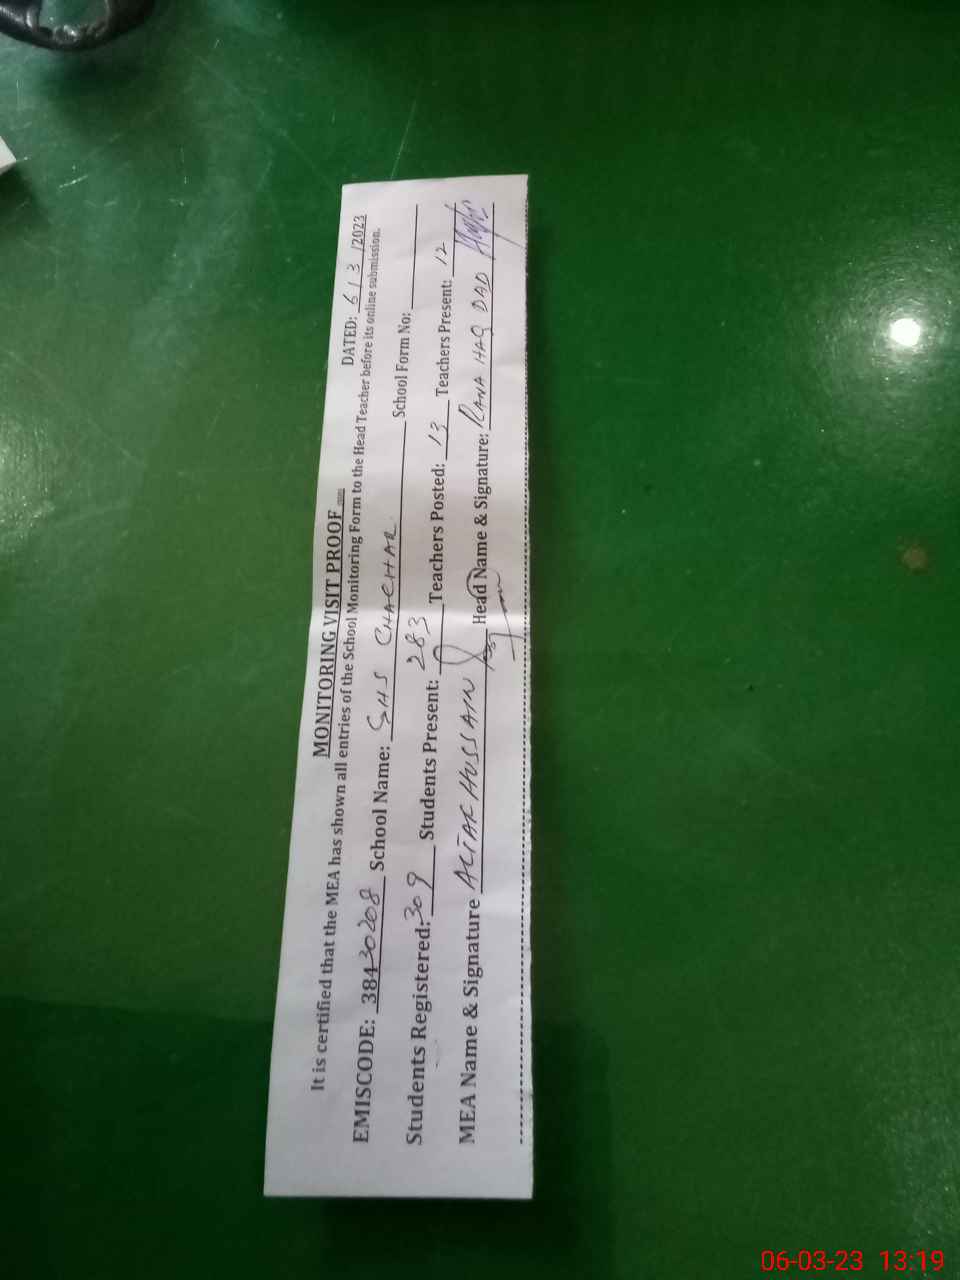 MONITORING VISIT PROOF
DATED: 6/3/2023
It is certified that the MEA has shown all entries of the School Monitoring Form to the Head Teacher before its online submission.
EMISCODE: 38430208 School Name: GHS CHACHAR School Form No:
Students Registered: 309 Students Present: 283 Teachers Posted: 13 Teachers Present: 12
MEA Name & Signature ALTAF HUSSAIN Head Name & Signature: RANA HAQ DAD
06-03-23 13:19